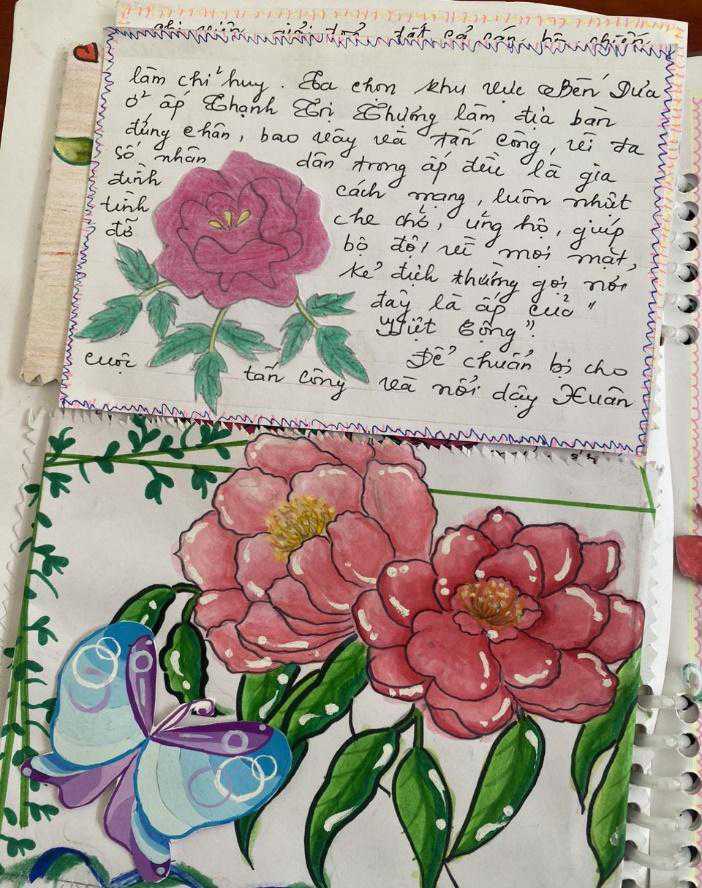 làm chỉ huy. Ta chọn khu vực Bến Dừa
ở ấp Thạnh Trị Thượng làm địa bàn
đứng chân, bao vây và tấn công, vì đa
số nhân dân trong ấp đều là gia
đình cách mạng, luôn nhất
tình che chở, ủng hộ, giúp
đỡ bộ đội về mọi mặt,
kẻ địch thường gọi nơi
đây là ấp của "
Việt Cộng".
Để chuẩn bị cho
cuộc tấn công và nổi dậy Xuân